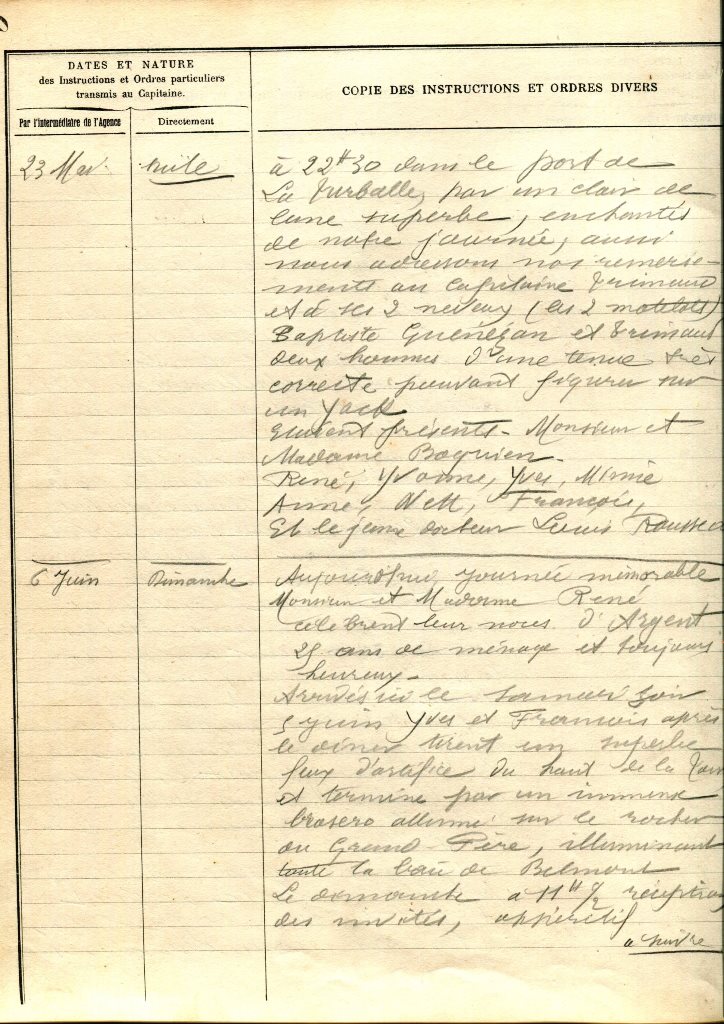 DATES ET NATURE
des Instructions et Ordres particuliers
transmis au Capitaine.
COPIE DES INSTRUCTIONS ET ORDRES DIVERS
Par l'intermédiaire de l'Agence
Directement
23 Mai suite
à 22H30 dans le port de
La Turballe, par un clair de
lune superbe, enchantés
de notre journée, aussi
nous adressons nos remercie-
ments au Capitaine Trimaud
et à ses 2 neveux (les 2 matelots)
Baptiste Guénégan et Trimaud
deux hommes d'une tenue très
correcte pouvant figurer sur
un Yack
Etaient présents - Monsieur et
Madame Boquien -
René, Yvonne, Yves, Mimie
Anne, Nell, François,
Et le jeune docteur Louis Rousseau
6 Juin Dimanche
Aujourd'hui, journée mémorable
Monsieur et Madame René
célèbrent leur noces d'Argent
25 ans de ménage et toujours
heureux -
Arrivés ici le samedi soir
5 juin Yves et François après
le dîner tirent un superbe
feux d'artifice du haut de la Tour
et termine par un immense
brasero allumé sur le rocher
du Grand-Père, illuminant
toute la baie de Belmont
Le dimanche à 11H 1/2 réception
des invités, appéretif
a suivre